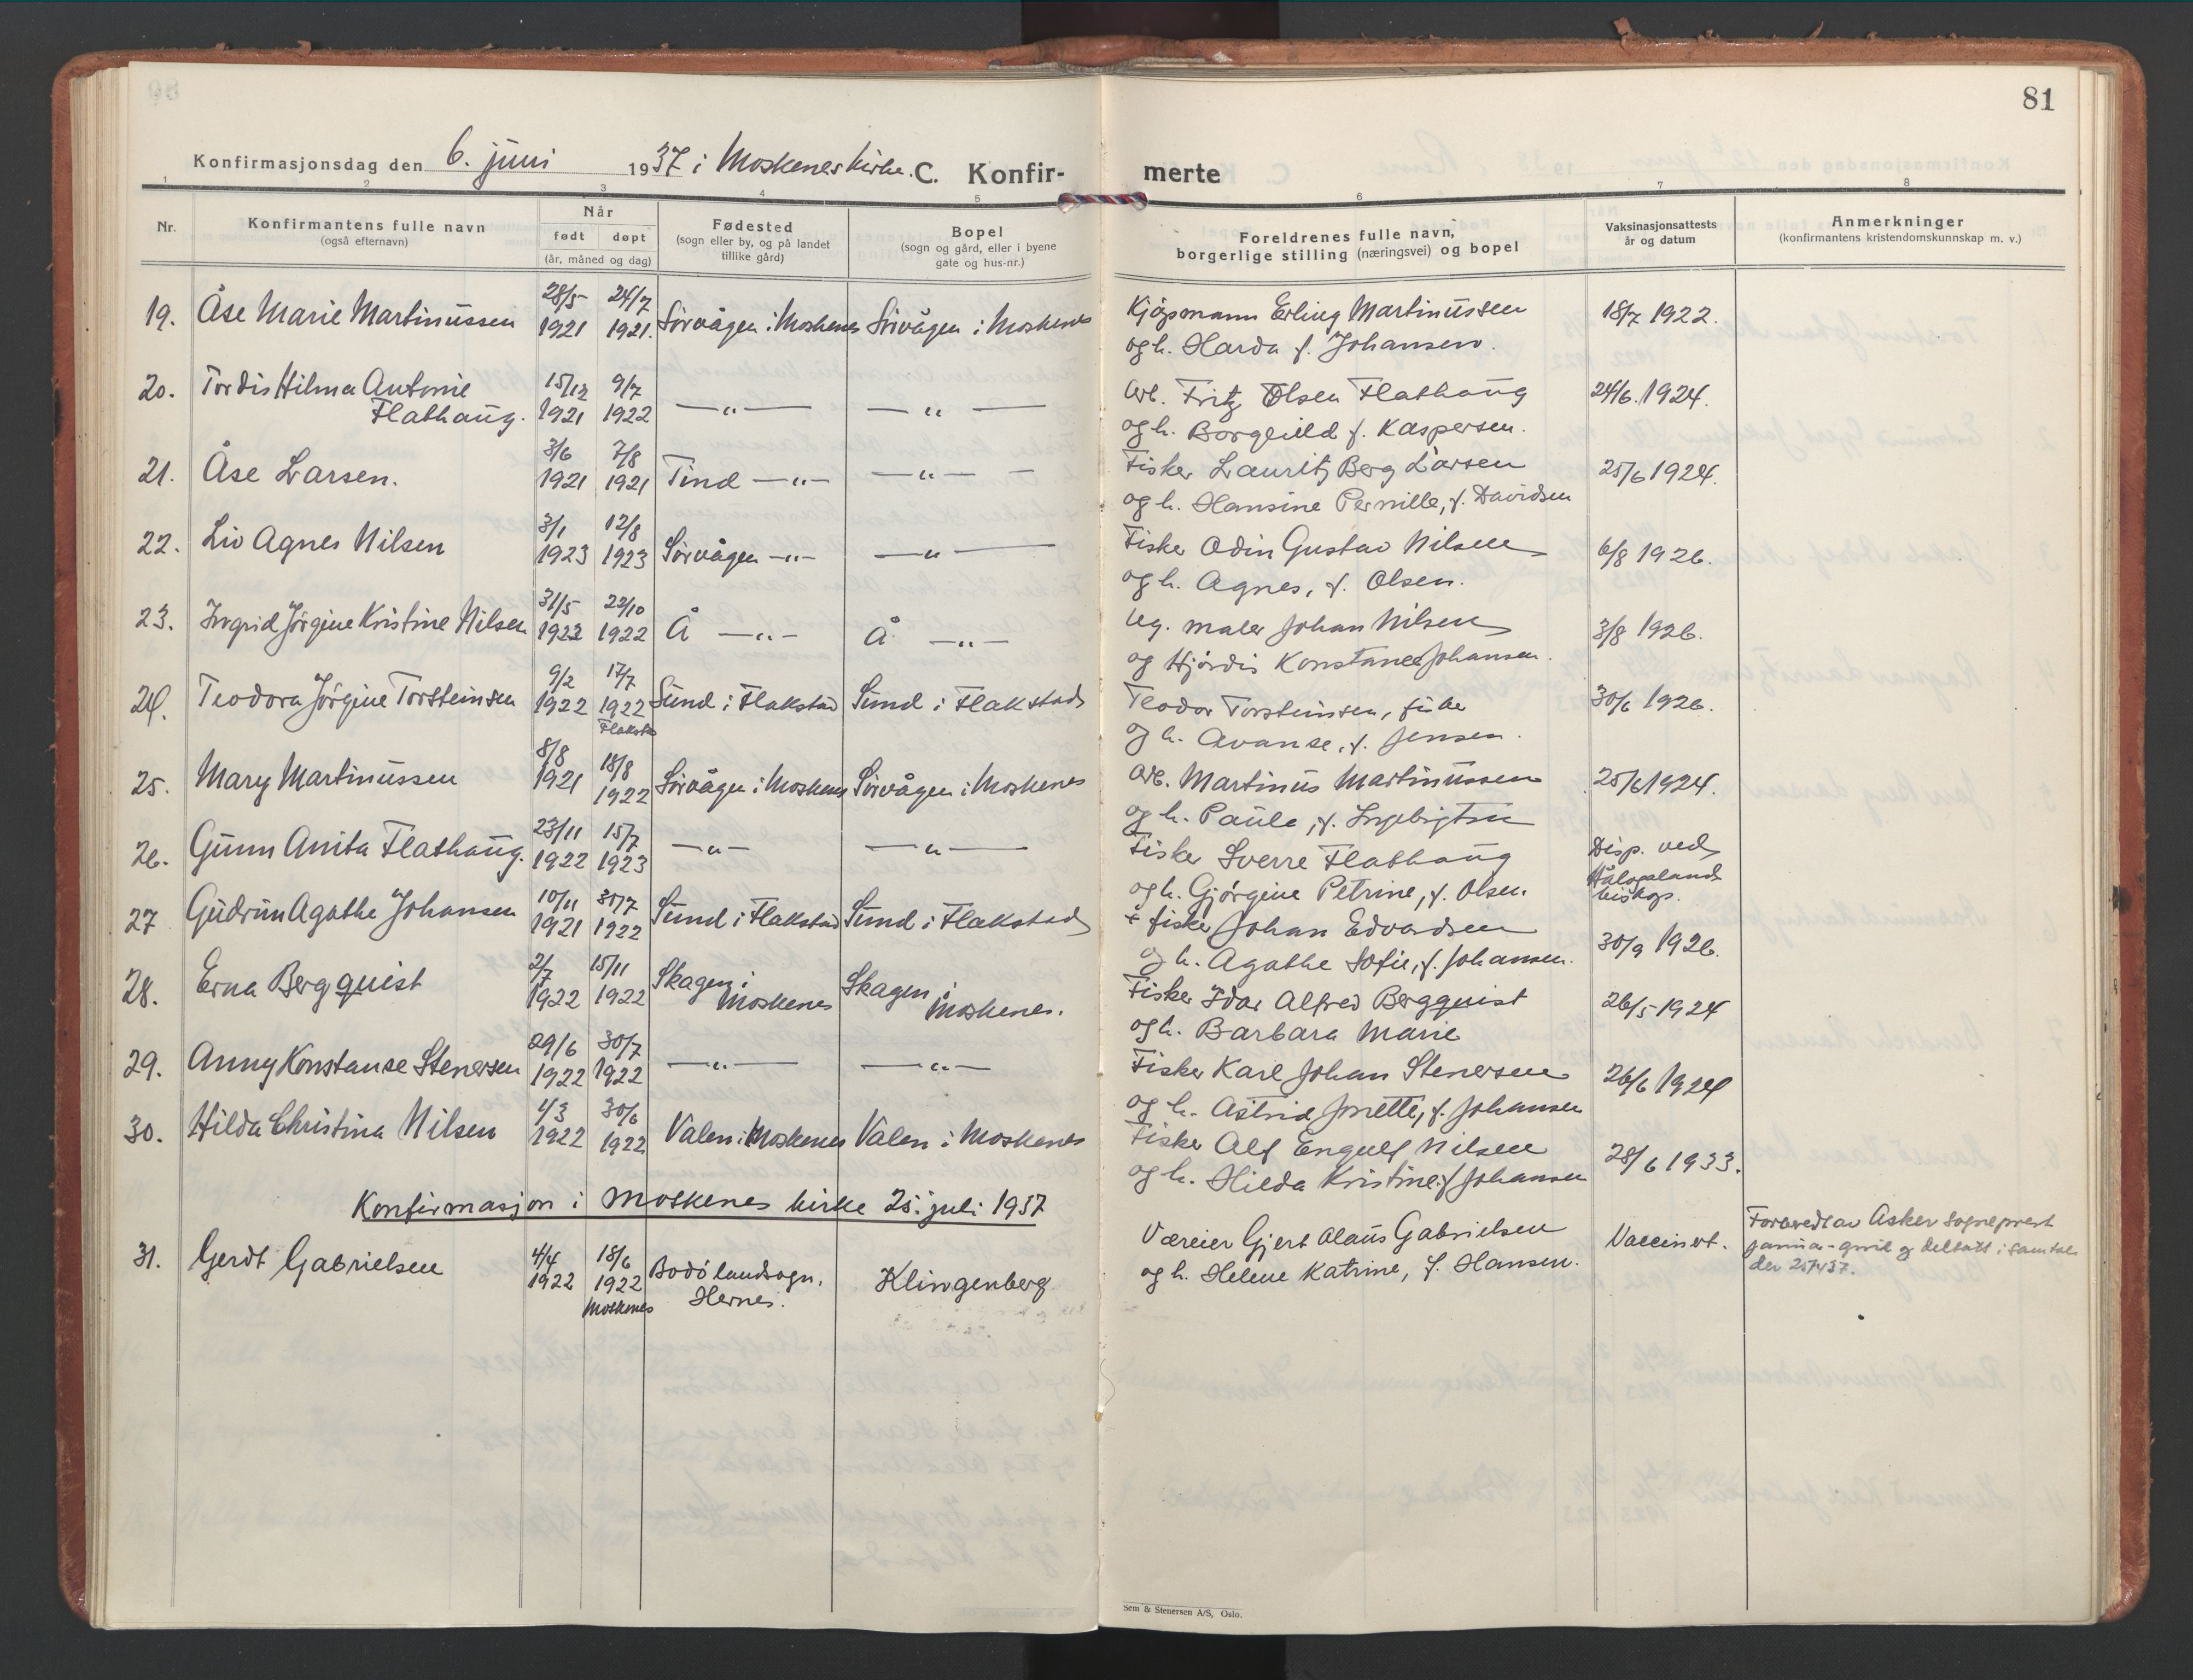 81
Konfirmasjonsdag den 6. juni 1937 i Moskenes kirke. C. Konfir-
merte
1 2 3 4 5 6 7 8
Nr.
Konfirmantens fulle navn
(også efternavn)
Når
født døpt
(år, måned og dag)
Fødested
(sogn eller by, og på landet
tillike gård)
Bopel
(sogn og gård, eller i byene
gate og hus-nr.)
Foreldrenes fulle navn,
borgerlige stilling (næringsvei) og bopel
Vaksinasjonsattests
år og datum
Anmerkninger
(konfirmantens kristendomskunnskap m. v.)
19. Åse Marie Martinussen 28/5 1921 24/7 1921. Sørvågen i Moskenes Sørvågen i Moskenes Kjøpmann Erling Martinussen 18/7 1922.
og h. Harda f. Johansen.
20. Tordis Hilma Antonie 15/12 1921 9/7 1922 —"— —"— Arb. Fritz Olsen Flathaug 24/6. 1924.
Flathaug. og h. Borghild f. Kaspersen.
21. Åse Larsen. 3/6 1921 7/8 1921 Tind —"— —"— Fisker Lauritz Berg Larsen 25/6 1924.
og h. Hansine Pernille, f. Davidsen
22. Liv Agnes Nilsen 3/1 1923 12/8 1923 Sørvågen —"— —"— Fisker Odin Gustav Nilsen 6/8 1926.
og h. Agnes, f. Olsen.
23. Ingrid Jørgine Kristine Nilsen 31/5 1922 22/10 1922 Å —"— Å —"— Ug. maler Johan Nilsen 3/8 1926.
og Hjørdis Konstance Johansen.
24. Teodora Jørgine Torsteinsen 9/2 1922 17/7 1922 Flakstad Sund i Flakstad Sund i Flakstad Teodor Torsteinsen, fisker 30/6 1926.
og h. Avanse, f. Jensen.
25. Mary Martinussen 8/8 1921 18/8 1922 Sørvågen i Moskenes Sørvågen i Moskenes Arb. Martinus Martinussen 25/6 1924.
og h. Paula, f. Ingebrigtsen
26. Gunn Anita Flathaug. 23/11 1922 15/7 1923 —"— —"— Fisker Sverre Flathaug Disp. ved
og h. Gjørgine Petrine, f. Olsen. Hålogaland
biskop.
27 Gudrun Agathe Johansen 10/11 1921 30/7 1922 Sund i Flakstad Sund i Flakstad + fisker Johan Edvardsen 30/9 1926.
og h. Agathe Sofie, f. Johansen.
28. Erna Bergquist 2/7 1922 15/11 1922 Skagen i Moskenes Skagen i Moskenes. Fisker Idar Alfred Bergquist 26/5 1924
og h. Barbara Marie
29. Anny Konstanse Stenersen 29/6 1922 30/7 1922 —"— —"— Fisker Karl Johan Stenersen 26/6 1924
og h. Astrid Jonette, f. Johansen
30. Hilda Christina Nilsen 4/3 1922 30/6 1922 Valen i Moskenes Valen i Moskenes Fisker Alf Engulf Nilsen 28/6 1933.
og h. Hilda Kristine f. Johansen
Konfirmasjon i Moskenes kirke 25. juli 1937
31. Gerdt Gabrielsen 4/4 1922 18/6 1922 Moskenes Bodø landsogn, Hernes. Klingenberg Væreier Gjert Olaus Gabrielsen Vaccinert. Forberedt av Asker sogneprest
og h. Helene Katrine, f. Hansen. januar-april og deltatt i samtale
den 25/7 37.
Sem & Stenersen A/S, Oslo.